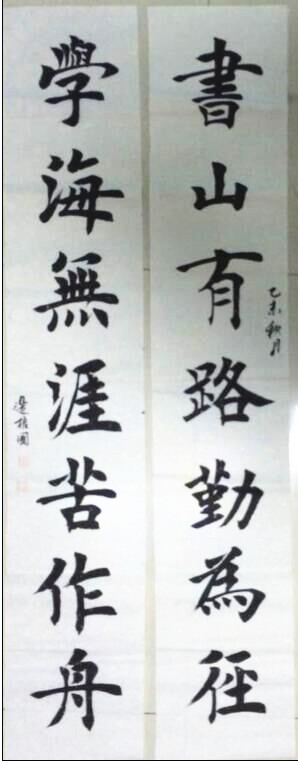 書山有路勤為徑
乙未秋月
學海無涯苦作舟